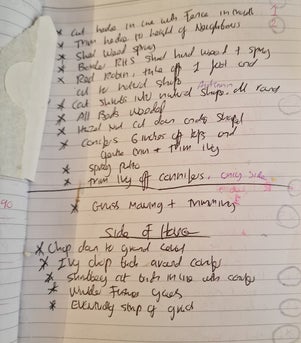 * Cut hedge in line with Fence in
* Trim hedge to height of Neighbours
* Shed Wood spray
* Border RHS shed hard wood + spray
* Red Robin, take off 1 foot and
cut to natural shape
* Cut shrubs into natural shape, all round
* All Beds weeded
* Hazel Nut cut down and shaped
* Conifers 6 inches off tops and
+ Trim Ivy
* Spray Patio
* Trim Ivy off conifers, only side
* Grass Mowing + trimming
Side of House
* Chop down to ground level
* Ivy chop back around conifer
* Shrubbery cut back in line with conifer
* Future
* Eventually strip of
90
1
2